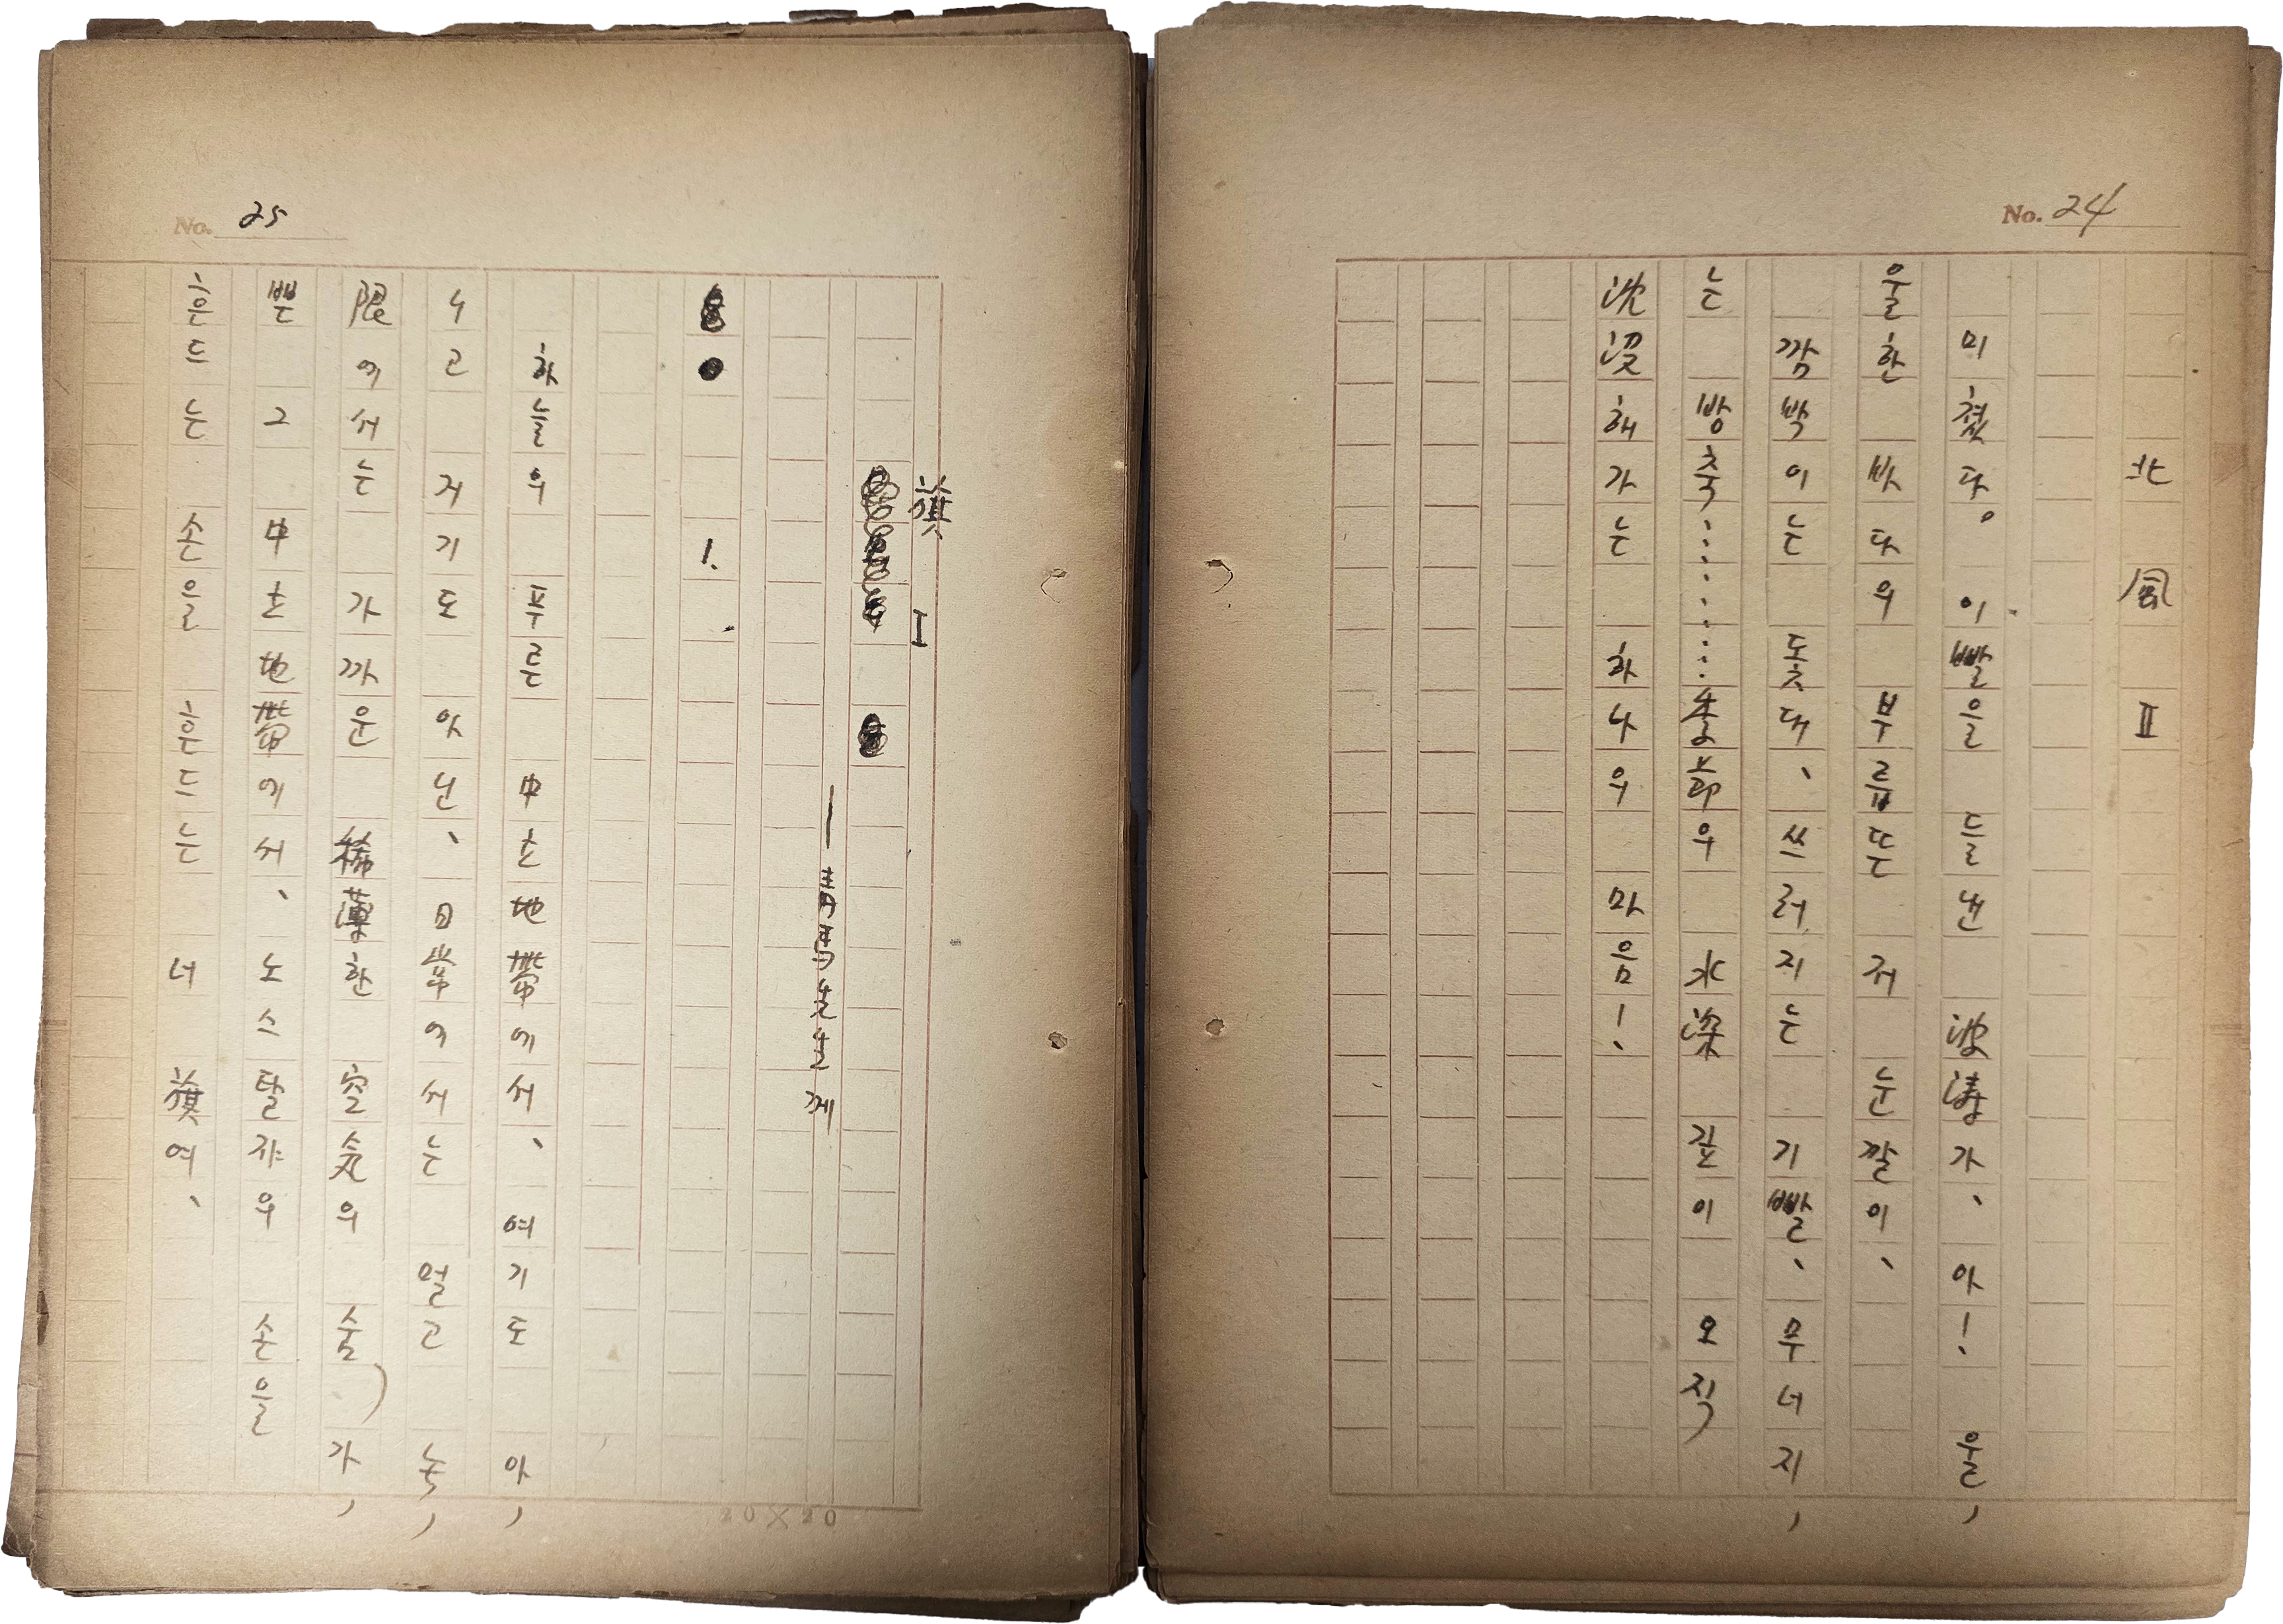 No. 24
北風 Ⅱ
미쳤다。 이빨을 들낸 波濤가、 아!、 울,
울한 바다의 부릅뜬 저 눈깔이、
깜박이는 돛대、 쓰러지는 기빨、 무너지,
는 방축…………季節의 水深 깊이 오직
沈沒해가는 하나의 마음!、
No. 25
旗 Ⅰ
—靑馬先生께
1.
하늘의 푸른 中立地帶에서、 여기도 아,
니고 저기도 아닌、 日常에서는 멀고 無,
限에서는 가까운 稀薄한 空気의 숨가,
쁜 그 中立地帶에서、 노스탈쟈의 손을
흔드는 손을 흔드는 너 旗여、
20×20